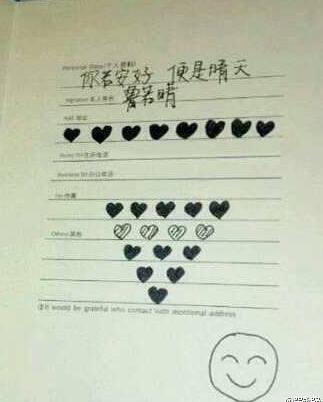 Personal Data(个人资料)
你若安好 便是晴天
Signature 本人签名
鲁若晴
Add 地址
Home Tel 住所电话
Business Tel 办公电话
Fax 传真
Others 其他
It would be grateful who contact with montional address